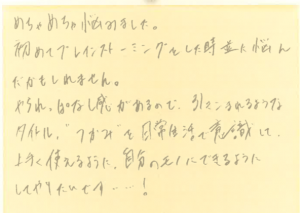 めちゃめちゃ悩みました。
初めてブレインストーミングをした時並に悩ん
だかもしれません。
やられっぱなし感があるので、引きこまれるような
タイトル、"つかみ"を日常生活で意識して、
上手く使えるように、自分のモノにできるように
してやりたいです・・・!